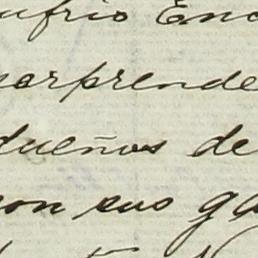 ufrio Enc
sorprende
dueños de
con sus ga